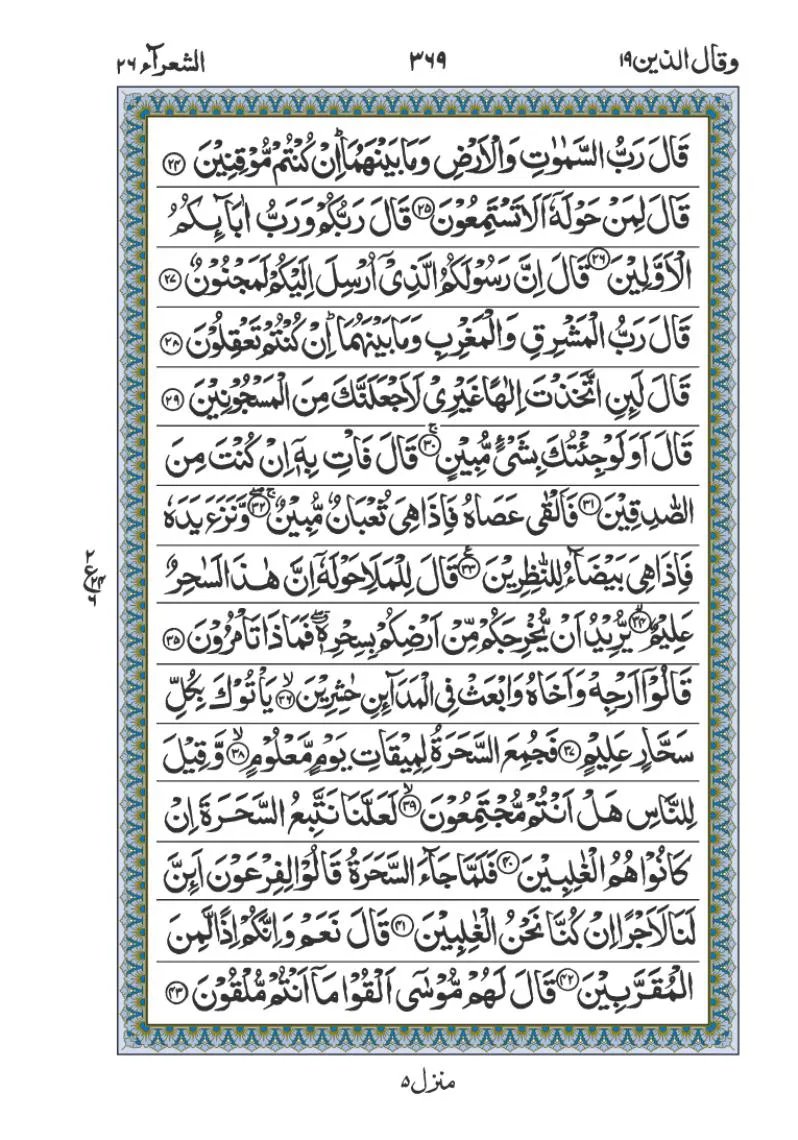 وقال الذين ١٩ ٣٦٩ الشعرآء ٢٦
قَالَ رَبُّ السَّمٰوٰتِ وَالْاَرْضِ وَمَا بَيْنَهُمَا ؕ اِنْ كُنْتُمْ مُّوْقِنِيْنَ ﴿۲۴﴾
قَالَ لِمَنْ حَوْلَهٗۤ اَلَا تَسْتَمِعُوْنَ ﴿۲۵﴾ قَالَ رَبُّكُمْ وَرَبُّ اٰبَآئِكُمُ
الْاَوَّلِيْنَ ﴿۲۶﴾ قَالَ اِنَّ رَسُوْلَكُمُ الَّذِيْۤ اُرْسِلَ اِلَيْكُمْ لَمَجْنُوْنٌ ﴿۲۷﴾
قَالَ رَبُّ الْمَشْرِقِ وَالْمَغْرِبِ وَمَا بَيْنَهُمَا ؕ اِنْ كُنْتُمْ تَعْقِلُوْنَ ﴿۲۸﴾
قَالَ لَئِنِ اتَّخَذْتَ اِلٰهًا غَيْرِيْ لَاَجْعَلَنَّكَ مِنَ الْمَسْجُوْنِيْنَ ﴿۲۹﴾
قَالَ اَوَلَوْ جِئْتُكَ بِشَيْءٍ مُّبِيْنٍ ۚ ﴿۳۰﴾ قَالَ فَاْتِ بِهٖۤ اِنْ كُنْتَ مِنَ
الصّٰدِقِيْنَ ﴿۳۱﴾ فَاَلْقٰى عَصَاهُ فَاِذَا هِيَ ثُعْبَانٌ مُّبِيْنٌ ۚۖ ﴿۳۲﴾ وَّنَزَعَ يَدَهٗ
فَاِذَا هِيَ بَيْضَآءُ لِلنّٰظِرِيْنَ ﴿۳۳﴾ قَالَ لِلْمَلَاِ حَوْلَهٗۤ اِنَّ هٰذَا لَسٰحِرٌ
۲ ع ۲۴ ۶
عَلِيْمٌ ۙ ﴿۳۴﴾ يُّرِيْدُ اَنْ يُّخْرِجَكُمْ مِّنْ اَرْضِكُمْ بِسِحْرِهٖ ۖ فَمَاذَا تَاْمُرُوْنَ ﴿۳۵﴾
قَالُوْۤا اَرْجِهْ وَاَخَاهُ وَابْعَثْ فِي الْمَدَآئِنِ حٰشِرِيْنَ ۙ ﴿۳۶﴾ يَاْتُوْكَ بِكُلِّ
سَحَّارٍ عَلِيْمٍ ﴿۳۷﴾ فَجُمِعَ السَّحَرَةُ لِمِيْقَاتِ يَوْمٍ مَّعْلُوْمٍ ۙ ﴿۳۸﴾ وَّقِيْلَ
لِلنَّاسِ هَلْ اَنْتُمْ مُّجْتَمِعُوْنَ ۙ ﴿۳۹﴾ لَعَلَّنَا نَتَّبِعُ السَّحَرَةَ اِنْ
كَانُوْا هُمُ الْغٰلِبِيْنَ ﴿۴۰﴾ فَلَمَّا جَآءَ السَّحَرَةُ قَالُوْا لِفِرْعَوْنَ اَئِنَّ
لَنَا لَاَجْرًا اِنْ كُنَّا نَحْنُ الْغٰلِبِيْنَ ﴿۴۱﴾ قَالَ نَعَمْ وَاِنَّكُمْ اِذًا لَّمِنَ
الْمُقَرَّبِيْنَ ﴿۴۲﴾ قَالَ لَهُمْ مُّوْسٰۤى اَلْقُوْا مَاۤ اَنْتُمْ مُّلْقُوْنَ ﴿۴۳﴾
منزل ۵